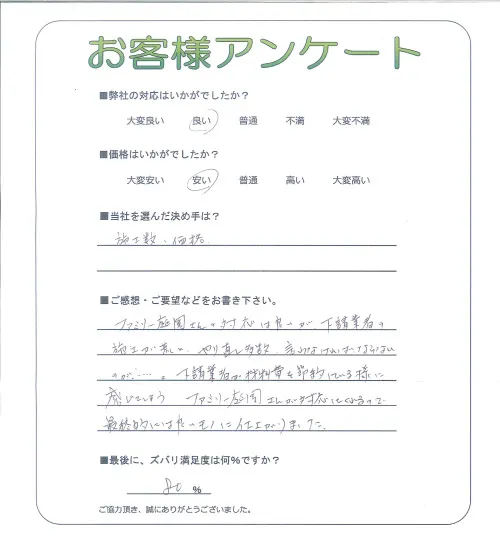 お客様アンケート
■弊社の対応はいかがでしたか？
大変良い 良い 普通 不満 大変不満
■価格はいかがでしたか？
大変安い 安い 普通 高い 大変高い
■当社を選んだ決め手は？
施工数・価格
■ご感想・ご要望などをお書き下さい。
ファミリー庭園さんの対応は良いが、下請業者の
施工が荒い。やり直し多数、言わなければならない
のが……。下請業者が材料費を節約している様に
感じてしまう ファミリー庭園さんが対応してくれるので
最終的には良いモノに仕上がりました。
■最後に、ズバリ満足度は何％ですか？
80 %
ご協力頂き、誠にありがとうございました。